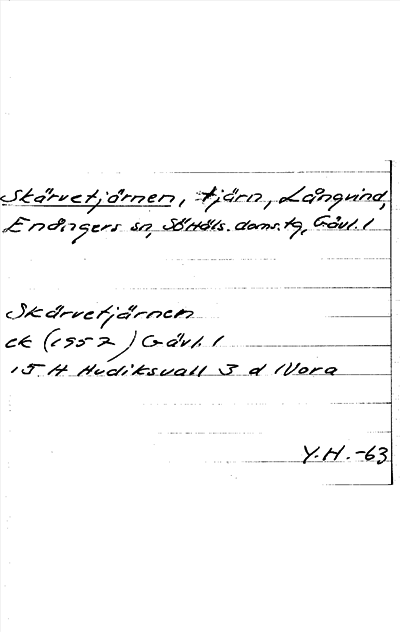 Skärvetjärnen, tjärn, Långvind,
Enångers sn, SöHäls. doms. tg, Gävl. l
Skärvetjärnen
ek (1957) Gävl. l
15 H Hudiksvall 3 d Nora
Y.H.-63